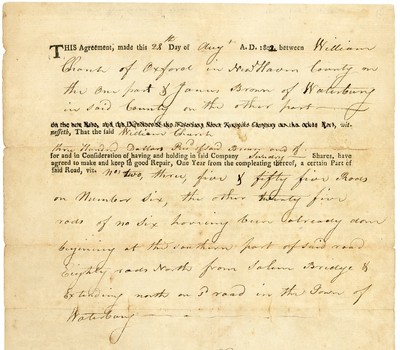 THIS Agreement, made this 28th Day of Augt A. D. 1802, between William
Church of Oxford in New Haven County on
the One part & James Brown of Waterbury
in said County on the other part
nesseth, That the said William Church
three Hundred Dollars
for and in Consideration of having and holding in said Company Shares, have
agreed to make and keep in good Repair, One Year from the compleating thereof, a certain Part of
said Road, viz. No two three, five & fifty five Rods
on Number six, the other twenty five
rods of no six having been already done
begining at the southern part of said road
Eighty rods North from Salem Bridge &
Extending north on sd road in the Town of
Waterbury